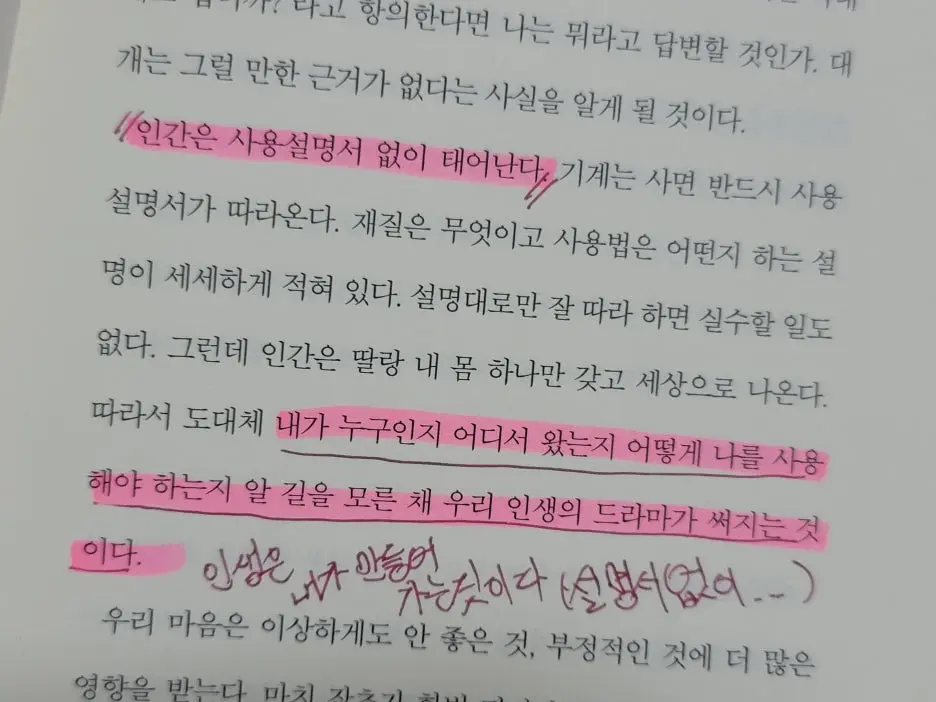 라고 항의한다면 나는 뭐라고 답변할 것인가. 대
개는 그럴 만한 근거가 없다는 사실을 알게 될 것이다.
"인간은 사용설명서 없이 태어난다." 기계는 사면 반드시 사용
설명서가 따라온다. 재질은 무엇이고 사용법은 어떤지 하는 설
명이 세세하게 적혀 있다. 설명대로만 잘 따라 하면 실수할 일도
없다. 그런데 인간은 딸랑 내 몸 하나만 갖고 세상으로 나온다.
따라서 도대체 내가 누구인지 어디서 왔는지 어떻게 나를 사용
해야 하는지 알 길을 모른 채 우리 인생의 드라마가 써지는 것
이다.
인생은 내가 만들어
가는것이다 (설명서없이...)
우리 마음은 이상하게도 안 좋은 것, 부정적인 것에 더 많은
영향을 받는다. 마치